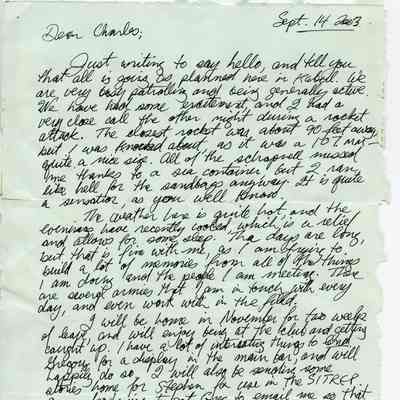 Sept. 14 2003
Dear Charles,
Just writing to say hello, and tell you
that all is going as planned here in Kabul. We
are very busy patrolling and being generally active.
We have had some excitement, and I had a
very close call the other night during a rocket
attack. The closest rocket was about 90 feet away
but I was knocked about, as it was a 107 mm -
quite a nice size. All of the schrapnell missed
me thanks to a sea container, but I ran
like hell for the sandbags anyway. It is quite
a sensation, as you well know.
The weather here is quite hot, and the
evenings have recently cooled, which is a relief
and allows for some sleep. The days are long
but that is fine with me, as I am trying to
build a lot of memories from all of the things
I am doing and the people I am meeting. There
are several armies that I am in touch with every
day, and even work with in the field.
I will be home in November for two weeks
of leave, and will enjoy being at the club and getting
caught up. I have a lot of interesting things to send
Gregory for a display in the main bar, and will
happily do so. I will also be sending some
stories home for Stephen for use in the SITREP
to email me so that